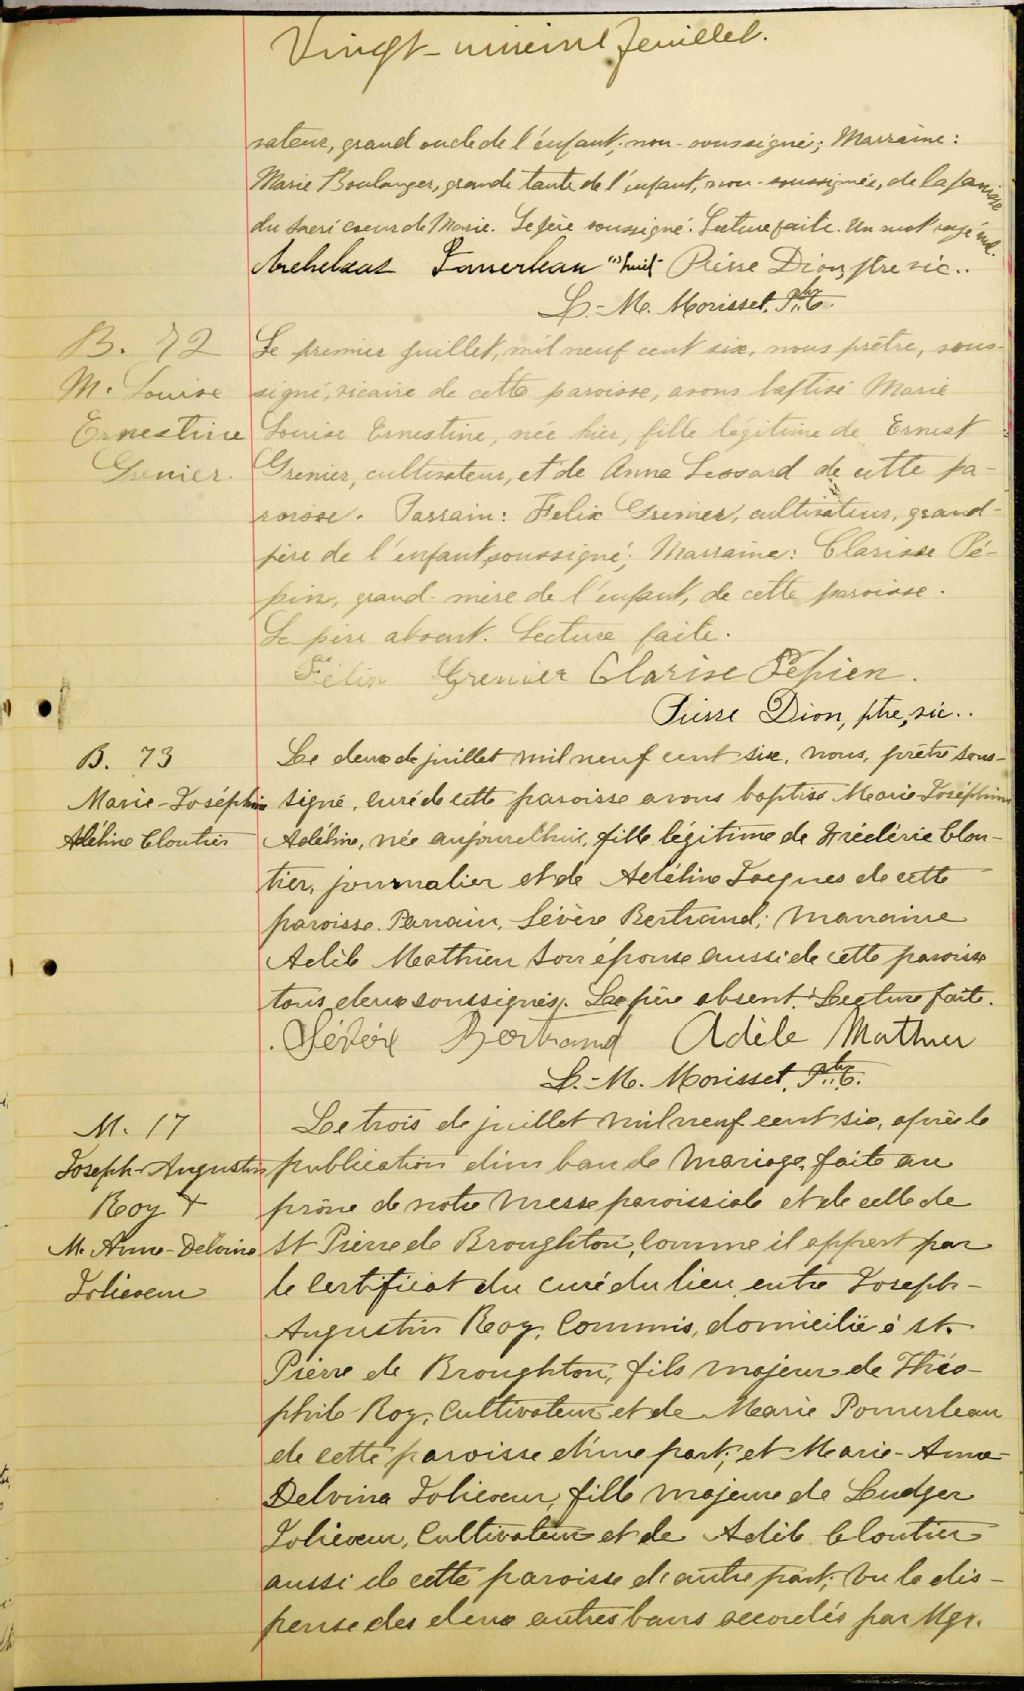 Vingt-unième feuillet.
sateur, grand oncle de l'enfant, non-soussigné; Marraine:
Marie Boulanger, grande tante de l'enfant, non-soussignée, de la paroisse
du Sacré coeur de Marie. Le père soussigné. Lecture faite. Un mot rayé nul.
Archelas Pomerleau "huit" Pierre Dion, ptre vic..
L.-M. Morisset, Ptre C.
B. 72
M. Louise
Ernestine
Grenier.
Le premier juillet, mil neuf cent six, nous prêtre, sous-
signé, vicaire de cette paroisse, avons baptisé Marie
Louise Ernestine, née hier, fille légitime de Ernest
Grenier, cultivateur, et de Anna Lessard de cette pa-
roisse. Parrain: Felix Grenier, cultivateur, grand-
père de l'enfant, soussigné; Marraine: Clarisse Pé-
pin, grand-mère de l'enfant, de cette paroisse.
Le père absent. Lecture faite.
Félix Grenier Clarise Pepien.
Pierre Dion, ptre, vic..
B. 73
Marie-Joséphine
Adéline Cloutier
Le deux de juillet mil neuf cent six, nous, prêtre sous-
signé, curé de cette paroisse avons baptisé Marie-Joséphine
Adéline, née aujourd'hui, fille légitime de Fréderic Clou-
tier, journalier et de Adéline Jacques de cette
paroisse. Parrain, Sévère Bertrand; marraine
Adèle Mathieu son épouse aussi de cette paroisse
tous deux soussignés. Le père absent. Lecture faite.
Sévère Bertrand Adèle Mathieu
L.-M. Morisset, Ptre C.
M. 17
Joseph-Augustin
Roy &
M. Anna-Delvina
Jolicoeur
Le trois de juillet mil neuf cent six, après la
publication d'un ban de mariage, faite au
prône de notre messe paroissiale et de celle de
St Pierre de Broughton, comme il appert par
le certificat du curé du lieu, entre Joseph-
Augustin Roy, Commis, domicilié à St.
Pierre de Broughton, fils majeur de Théo-
phile Roy, Cultivateur et de Marie Pomerleau
de cette paroisse d'une part; et Marie-Anna-
Delvina Jolicoeur, fille majeure de Ludger
Jolicoeur, Cultivateur et de Adèle Cloutier
aussi de cette paroisse d'autre part; Vu la dis-
pense des deux autres bans accordés par Mgr.